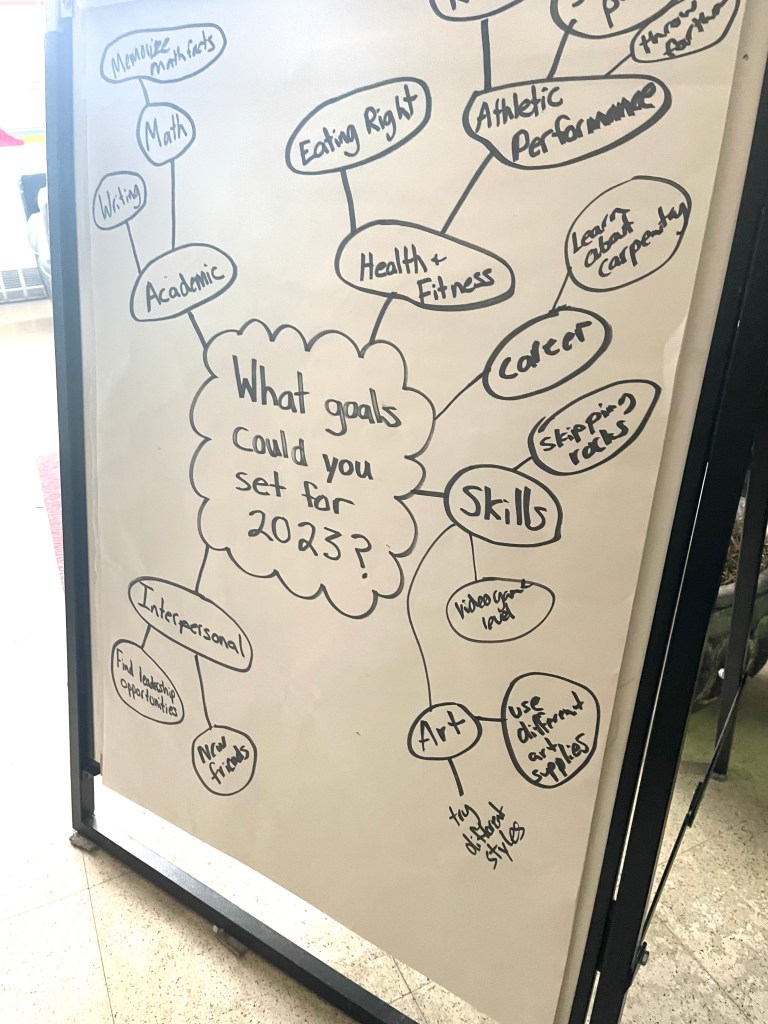 throw
farther
Memorize
math facts
Math
Eating Right
Athletic
Performance
Writing
Learn
about
carpentry
Academic
Health +
Fitness
career
What goals
could you
set for
2023?
skipping
rocks
Skills
video game
level
Interpersonal
Find leadership
opportunities
New
friends
Art
use
different
art
supplies
try
different
styles